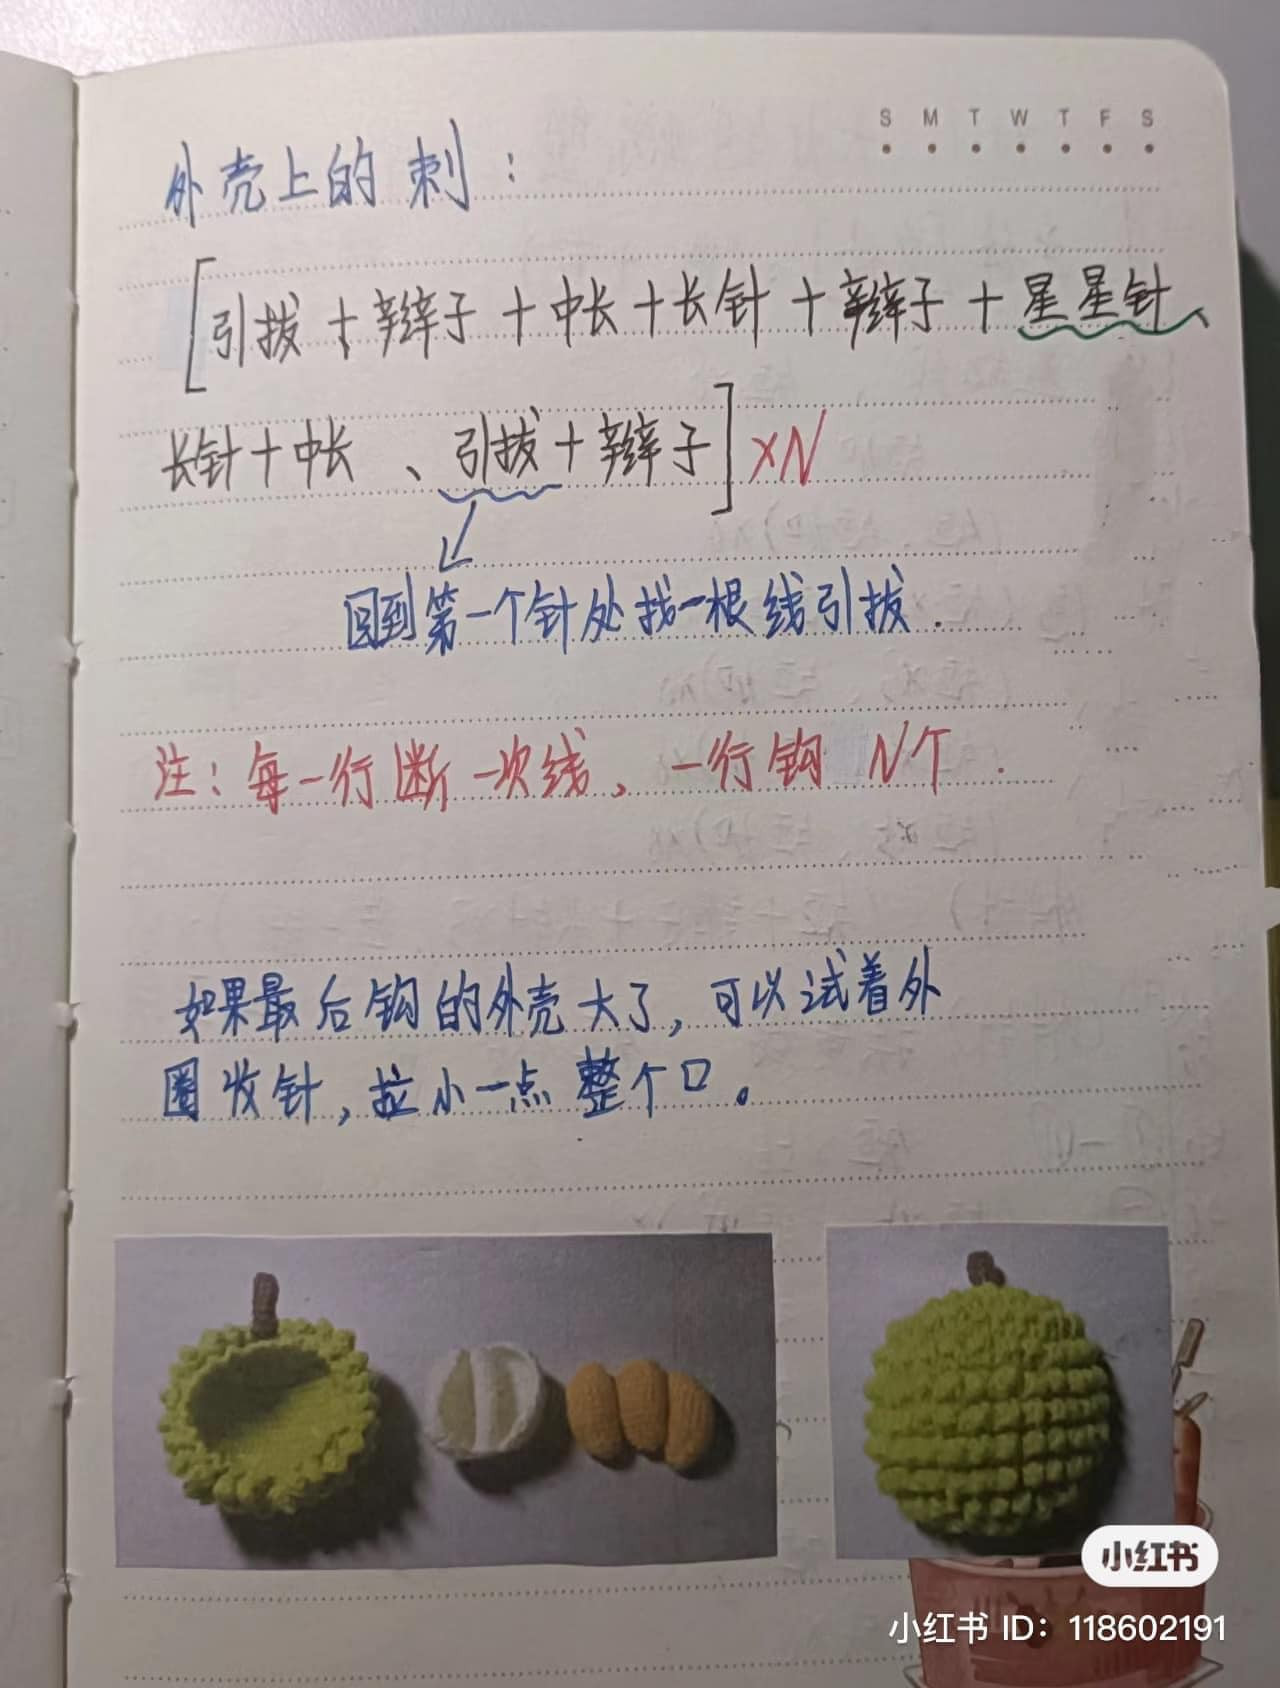 S M T W T F S
外壳上的刺：
[引拔+辫子+中长+长针+辫子+星星针
长针+中长、引拔+辫子]×N
回到第一个针处找一根线引拔.
注：每一行断一次线、一行钩N个.
如果最后钩的外壳大了，可以试着外
圈收针，拉小一点整个口。
小红书
小红书 ID：118602191